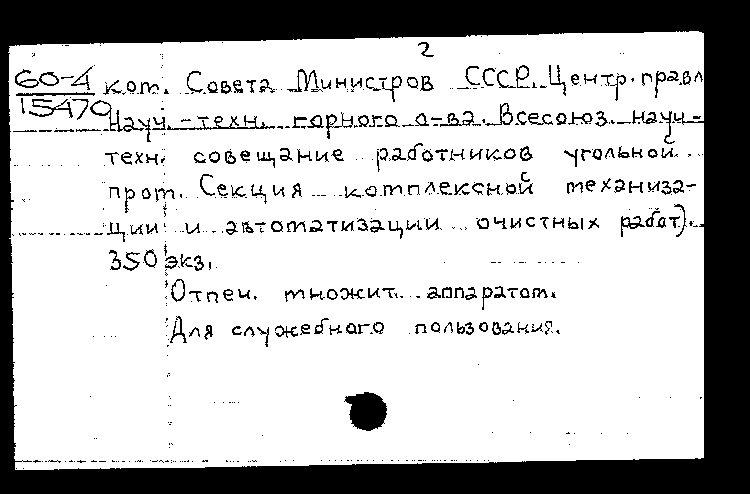 2
60-4 ком. Совета Министров СССР. Центр. правл
15470 Науч.-техн. горного о-ва. Всесоюз. науч-
техн. совещание работников угольной
пром. Секция комплексной механиза-
ции и автоматизации очистных работ).
350 экз.
Отпеч. множит. аппаратом.
Для служебного пользования.